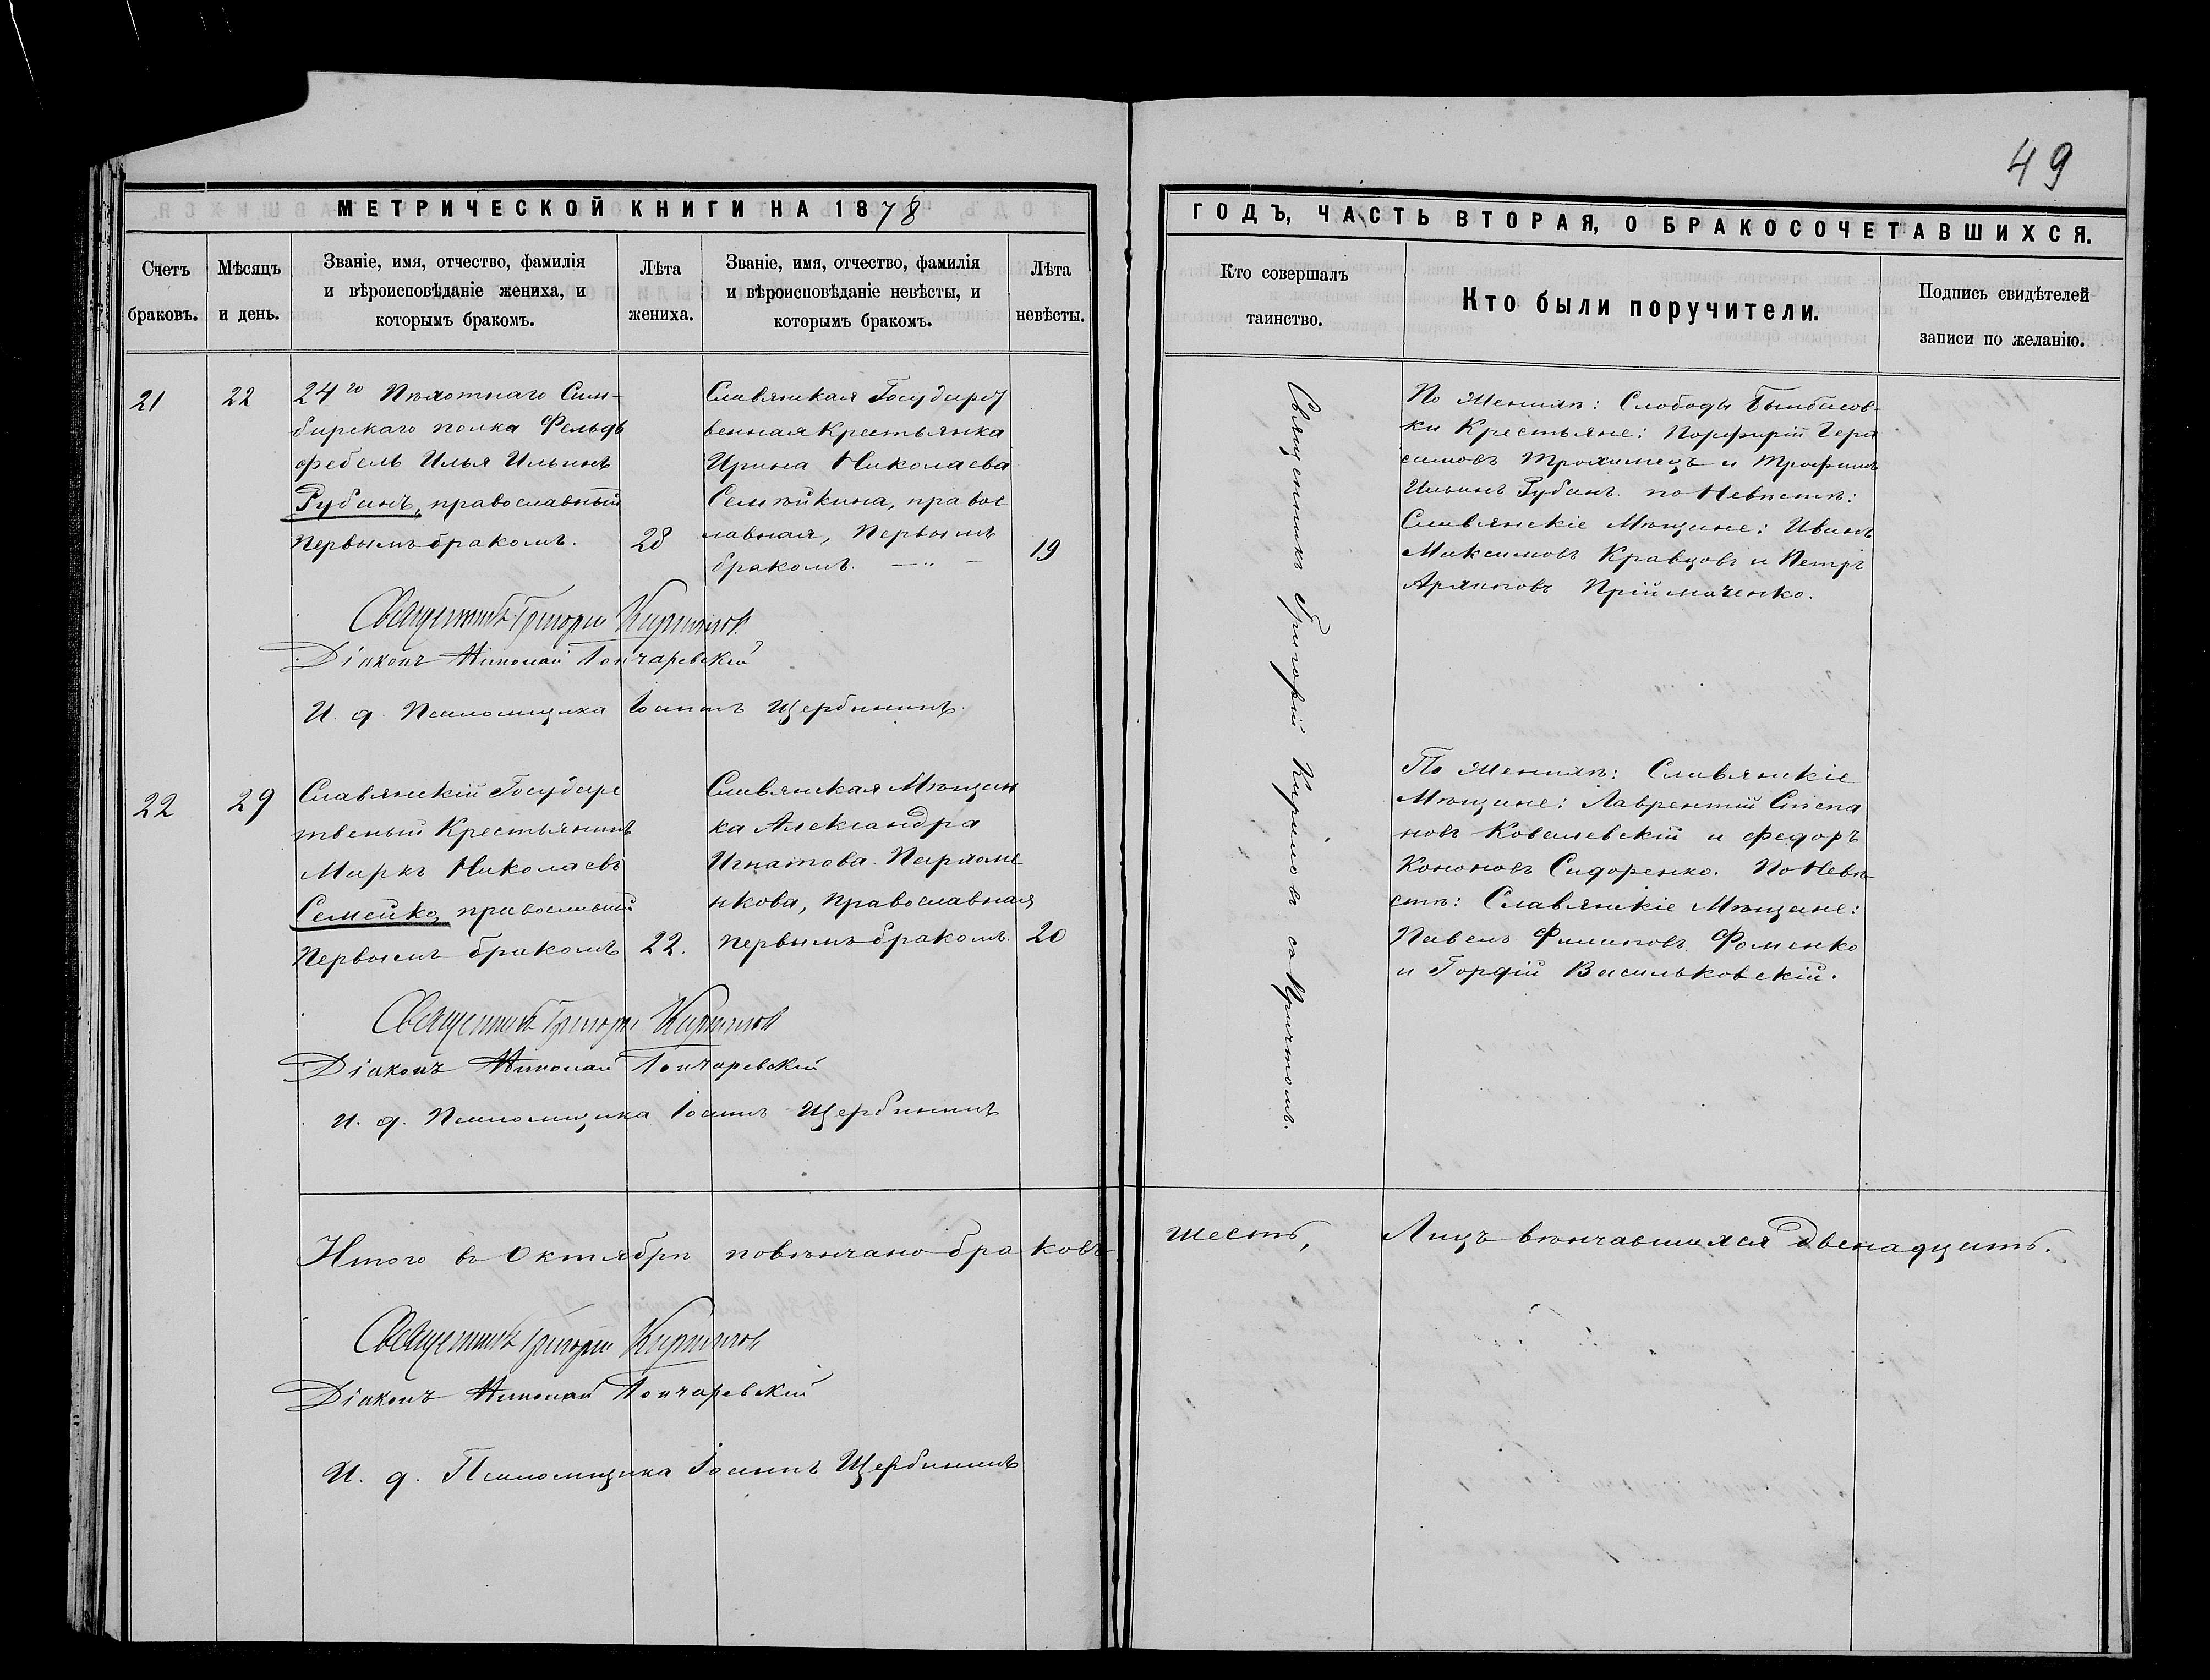 49
МЕТРИЧЕСКОЙ КНИГИ НА 1878
Счетъ
браковъ.
Мѣсяцъ
и день.
Званіе, имя, отчество, фамилія
и вѣроисповѣданіе жениха, и
которымъ бракомъ.
Лѣта
жениха.
Званіе, имя, отчество, фамилія
и вѣроисповѣданіе невѣсты, и
которымъ бракомъ.
Лѣта
невѣсты.
21
22
24го Пѣхотнаго Сим-
бирскаго полка Фельдъ
фебель Илья Ильинъ
Губанъ, православный
первымъ бракомъ.
28
Славянская Государст
венная Крестьянка
Ирина Николаева
Семейкина, правос
лавная, Первымъ
бракомъ. — „ —
19
Священникъ Григорій Кириловъ
Діаконъ Николай Гончаревскій
И. д. Псаломщика Іоаннъ Щербининъ.
22
29
Славянскій Государс
твеный Крестьянинъ
Маркъ Николаевъ
Семейко православный
Первымъ бракомъ
22.
Славянская Мѣщан
ка Александра
Игнатова Пархоме
нкова, православная
первымъ бракомъ.
20
Священникъ Григорій Кириловъ
Діаконъ Николай Гончаревскій
И. д. Псаломщика Іоаннъ Щербининъ
Итого въ Октябрѣ повѣнчано браковъ
Священникъ Григорій Кириловъ
Діаконъ Николай Гончаревскій
И. д. Псаломщика Іоаннъ Щербининъ
ГОДЪ, ЧАСТЬ ВТОРАЯ, О БРАКОСОЧЕТАВШИХСЯ.
Кто совершалъ
таинство.
Кто были поручители.
Подпись свидѣтелей
записи по желанію.
Священникъ Григорій Кириловъ съ Причтомъ.
По Женихѣ: Слободы Былбасов-
ки Крестьяне: Порфирій Гера
симовъ Трохимецъ и Трофимъ
Ильинъ Губанъ. по Невѣстѣ:
Славянскіе Мѣщане: Иванъ
Максимовъ Кравцовъ и Петръ
Архиповъ Прійmаченко.
По Женихѣ: Славянскіе
Мѣщане: Лаврентій Степа
новъ Ковалевскій и Федоръ
Кононовъ Сидоренко. По Невѣ
стѣ: Славянскіе Мѣщане:
Павелъ Филиповъ Фоменко
и Гордій Васильковскій.
шесть, Лицъ вѣнчавшихся двенадцать.